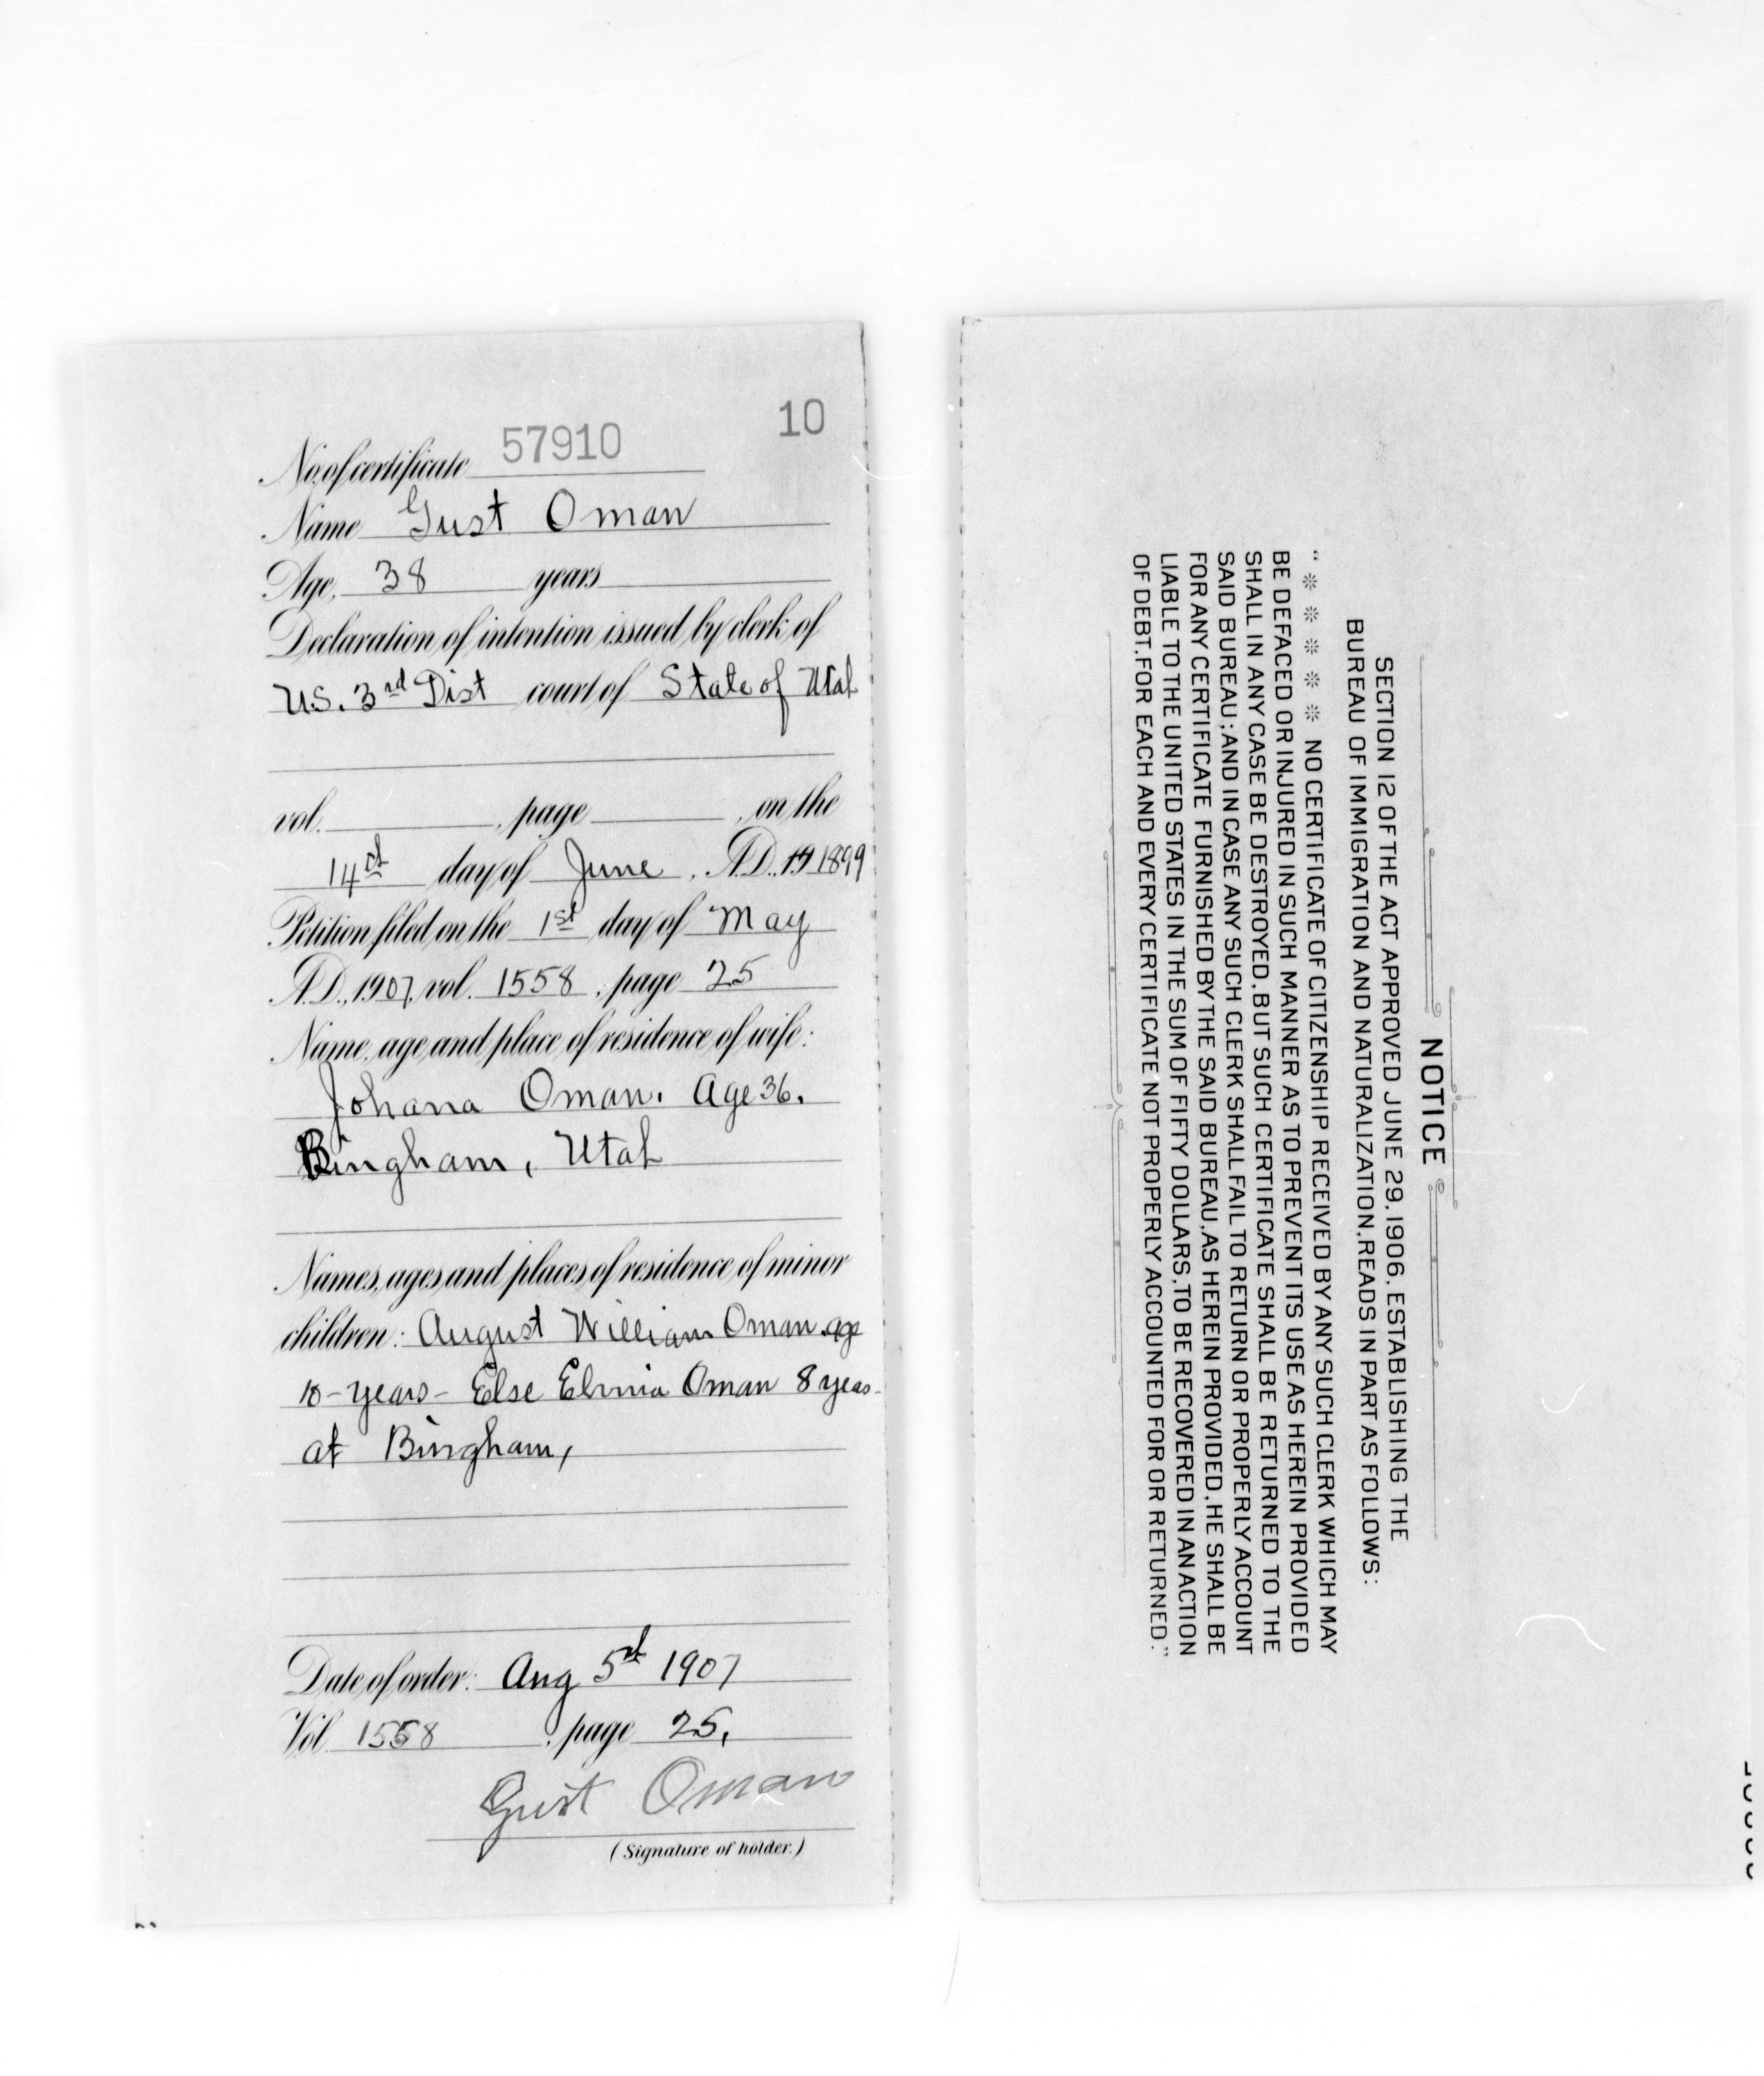 10
No. of certificate 57910
Name Gust Oman
Age, 38 years
Declaration of intention issued by clerk of
U.S. 3rd Dist court of State of Utah
vol. , page , on the
14th day of June , A.D. 19 1899
Petition filed on the 1st day of May
A.D., 1907, vol. 1558 , page 25
Name, age and place of residence of wife:
Johana Oman. Age 36.
Bingham, Utah
Names, ages and places of residence of minor
children: August William Oman. age
10-years- Else Oman 8 years-
at Bingham,
Date of order: Aug 5th 1907
Vol. 1558 , page 25,
Gust Oman
(Signature of holder.)
NOTICE
SECTION 12 OF THE ACT APPROVED JUNE 29, 1906, ESTABLISHING THE
BUREAU OF IMMIGRATION AND NATURALIZATION, READS IN PART AS FOLLOWS:
" * * * * * NO CERTIFICATE OF CITIZENSHIP RECEIVED BY ANY SUCH CLERK WHICH MAY
BE DEFACED OR INJURED IN SUCH MANNER AS TO PREVENT ITS USE AS HEREIN PROVIDED
SHALL IN ANY CASE BE DESTROYED, BUT SUCH CERTIFICATE SHALL BE RETURNED TO THE
SAID BUREAU; AND IN CASE ANY SUCH CLERK SHALL FAIL TO RETURN OR PROPERLY ACCOUNT
FOR ANY CERTIFICATE FURNISHED BY THE SAID BUREAU, AS HEREIN PROVIDED, HE SHALL BE
LIABLE TO THE UNITED STATES IN THE SUM OF FIFTY DOLLARS, TO BE RECOVERED IN AN ACTION
OF DEBT, FOR EACH AND EVERY CERTIFICATE NOT PROPERLY ACCOUNTED FOR OR RETURNED."